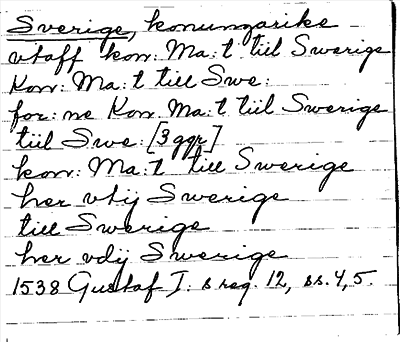 Sverige, konungarike
vtaff kon: Ma:t tiil Swerige
Kon: Ma:t till Swe:
for:ne Kon Ma:t tiil Swerige
tiil Swe: [3 ggr]
kon: Ma:t till Swerige
her vtij Swerige
till Swerige
her vdij Swerige
1538 Gustaf I:s reg. 12, ss. 4, 5.